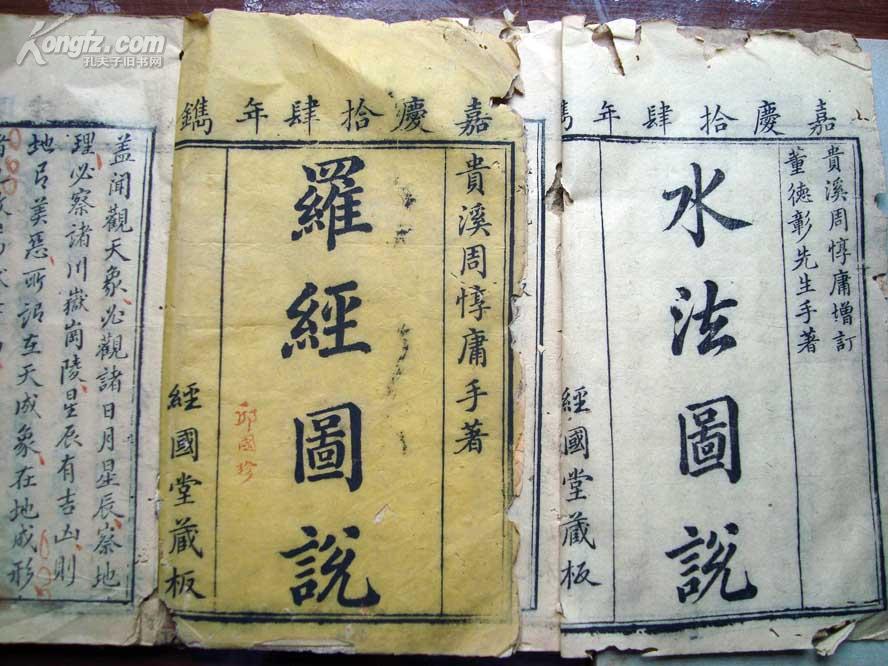 Kongfz.com
孔夫子旧书网
嘉慶拾肆年鐫
貴溪周惇庸增訂
董德彰先生手著
水法圖說
經國堂藏板
嘉慶拾肆年鐫
貴溪周惇庸手著
羅經圖說
邱國珍
經國堂藏板
蓋聞觀天象必觀諸日月星辰察地
理必察諸川嶽崗陵星辰有吉凶則
地有美惡所謂在天成象在地成形